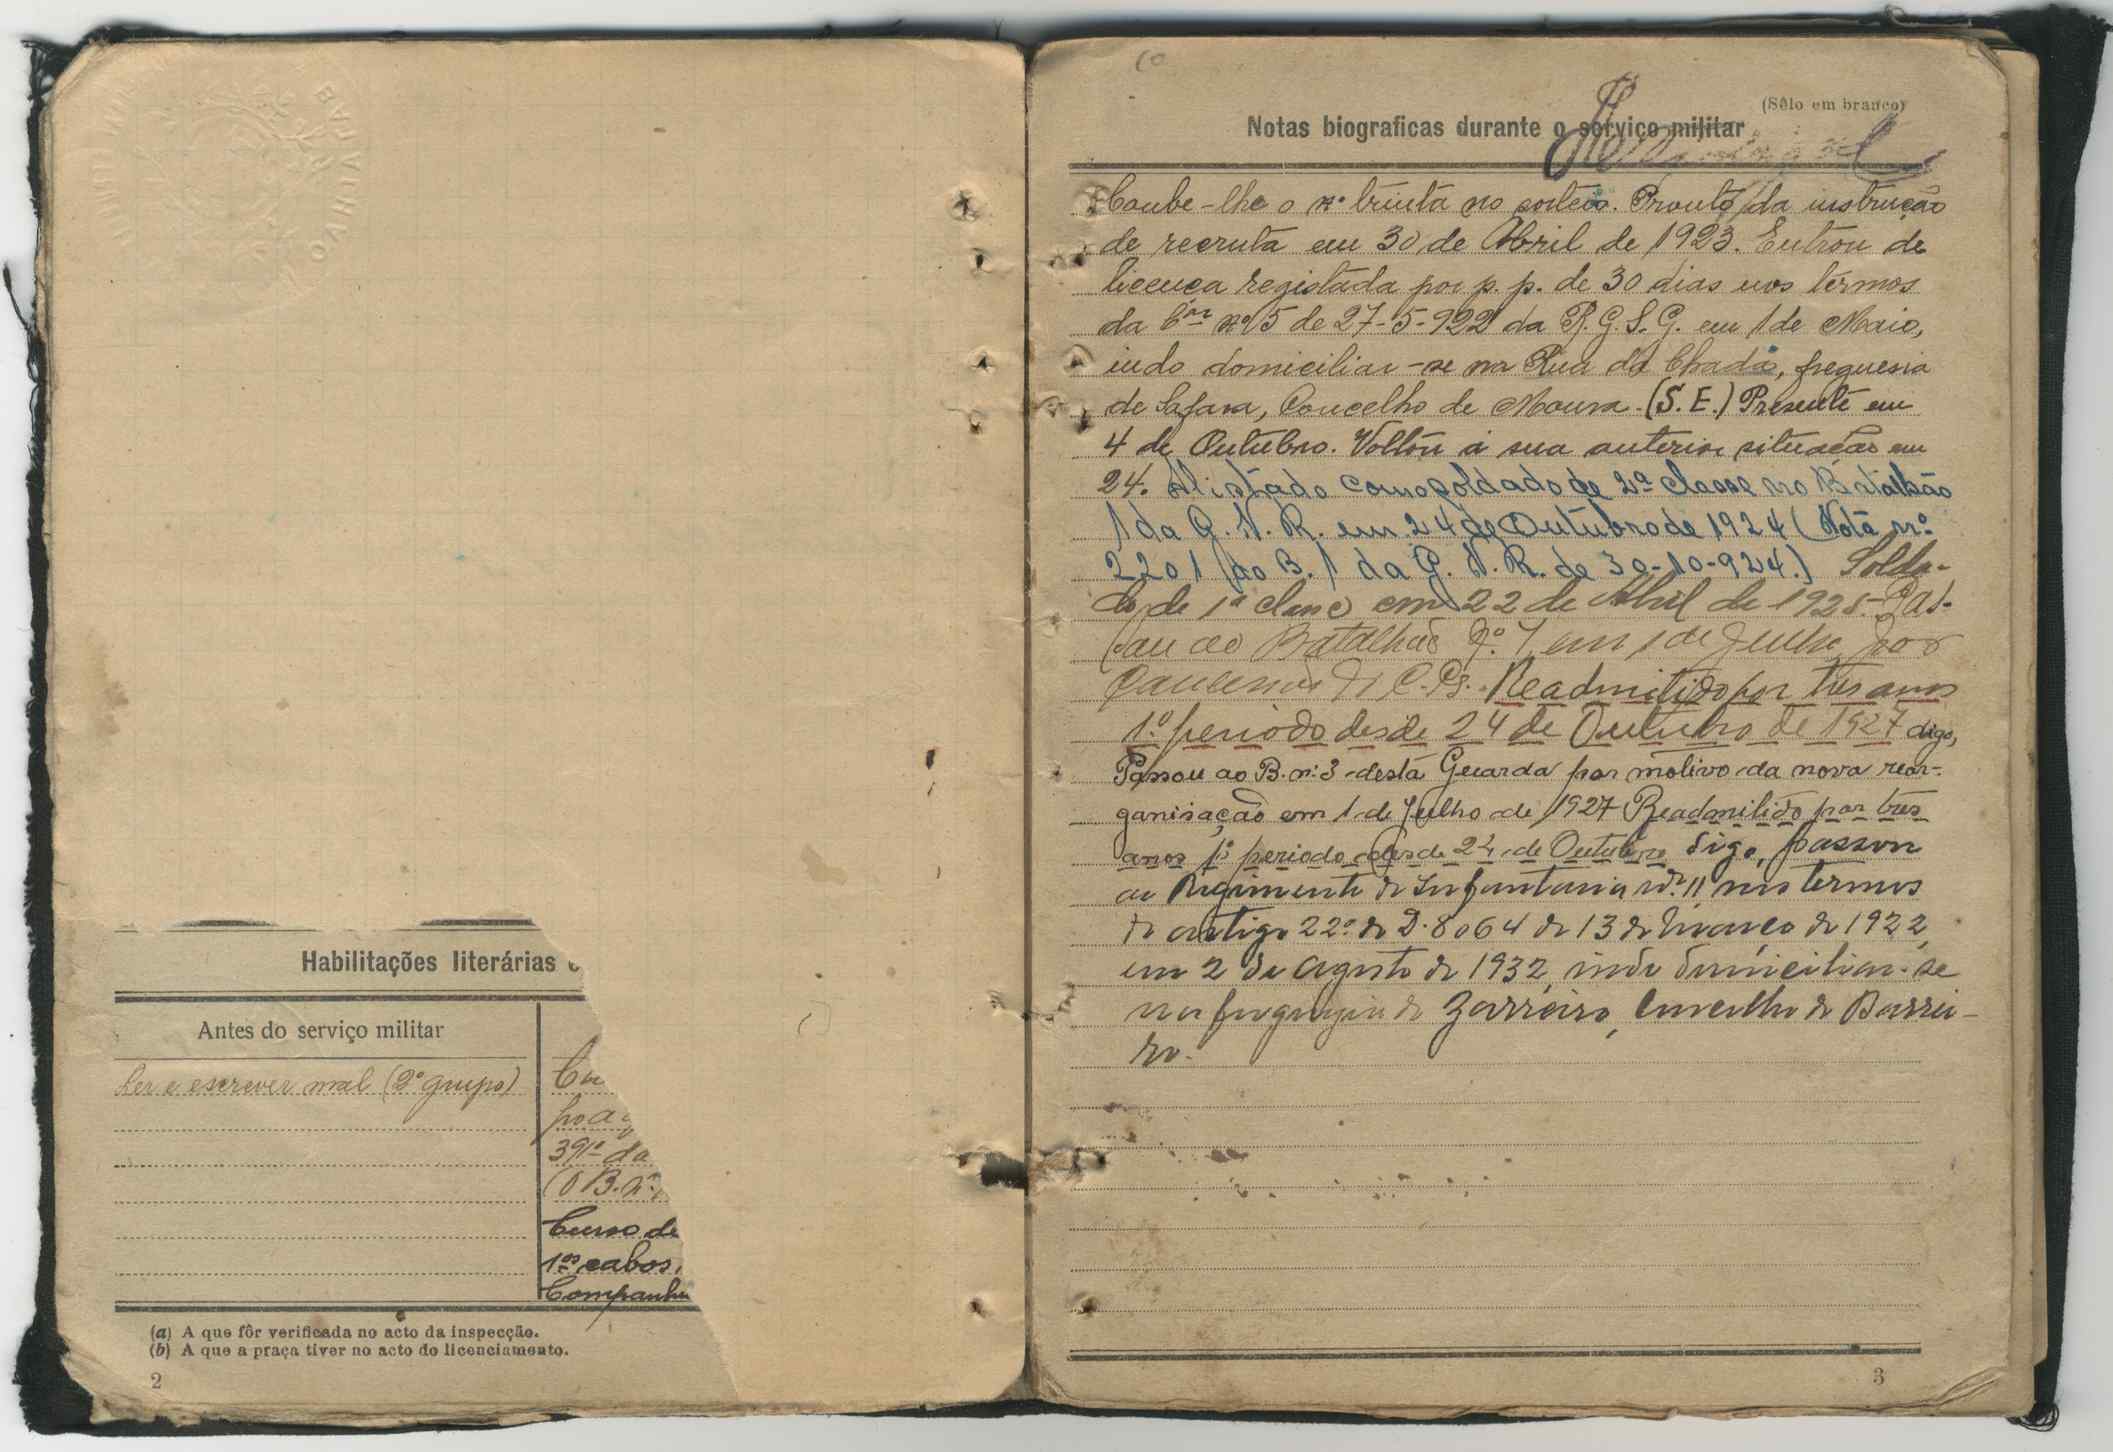 Habilitações literárias
Antes do serviço militar
Ler e escrever mal (2º grupo)
391º da
(O B. nº
Curso de
1ºs cabos,
Companhi
(a) A que fôr verificada no acto da inspecção.
(b) A que a praça tiver no acto do licenciamento.
2
(Sêlo em branco)
Notas biograficas durante o serviço militar
Coube-lhe o nº trinta no sorteio. Pronto da instrução
de recruta em 30 de Abril de 1923. Entrou de
licença registada por p. p. de 30 dias nos termos
da Cir nº 5 de 27-5-922 da R. G. S. G. em 1 de Maio,
indo domiciliar-se na Rua da Chada, freguesia
de Safara, Concelho de Moura. (S. E.) Presente em
4 de Outubro. Voltou á sua anterior situação em
24. Alistado como soldado de 2ª classe no Batalhão
1 da G. N. R. em 24 de Outubro de 1924 (Nota nº
2201 do B. 1 da G. N. R. de 30-10-924.) Solda-
do de 1ª classe em 22 de Abril de 1925. Pas-
sou ao Batalhão nº em 1 de Julho por
Readmitido por tres anos
1º periodo desde 24 de Outubro de 1927 digo,
Passou ao B. nº 3 desta Guarda por motivo da nova reor-
ganisação em 1 de Julho de 1927 Readmitido por tres
anos 1º periodo desde 24 de Outubro digo, passou
ao Regimento de Infantaria nº 11, nos termos
do artigo 22º do D. 8064 de 13 de Março de 1922,
em 2 de Agosto de 1932, indo domiciliar-se
na freguezia de Barreiro, Concelho do Barrei-
ro.
3